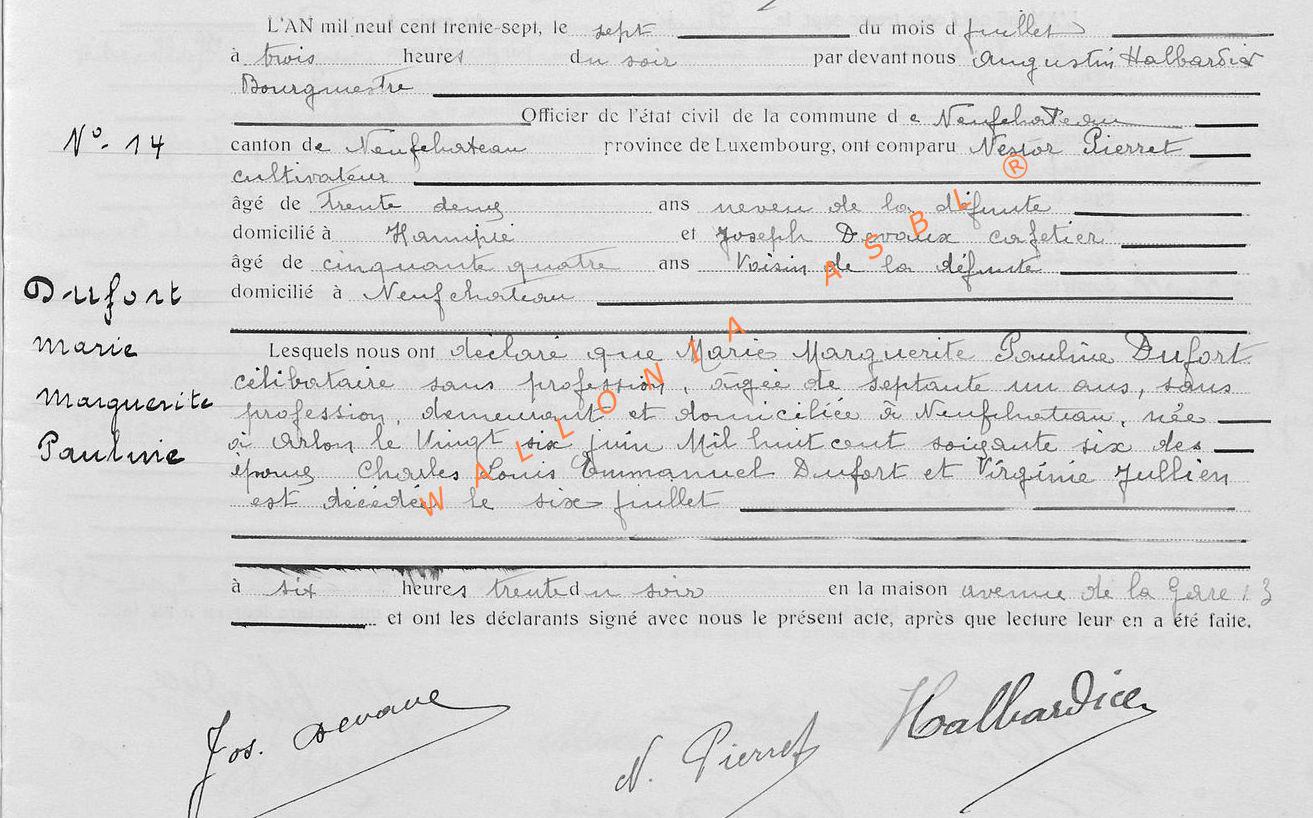 L'AN mil neuf cent trente-sept, le sept du mois d juillet
à trois heures du soir par devant nous Augustin Halbardier
Bourgmestre
Officier de l'état civil de la commune de Neufchateau
N° 14
canton de Neufchateau province de Luxembourg, ont comparu Nestor Pierret
cultivateur
âgé de trente deux ans neveu de la défunte
domicilié à Hamipré et Joseph Devaux cafetier
âgé de cinquante quatre ans Voisin de la défunte
domicilié à Neufchateau
Dufort
Marie
Marguerite
Pauline
Lesquels nous ont déclaré que Marie Marguerite Pauline Dufort
célibataire sans profession, âgée de septante un ans, sans
profession, demeurant et domiciliée à Neufchateau, née
à Arlon le Vingt six juin Mil huit cent soixante six des
époux Charles Louis Emmanuel Dufort et Virginie Jullien
est décédée le six juillet
à six heures trente du soir en la maison avenue de la Gare 13
et ont les déclarants signé avec nous le présent acte, après que lecture leur en a été faite.
Jos. Devaux
N. Pierret
Halbardier
WALLONIA ASBL ®